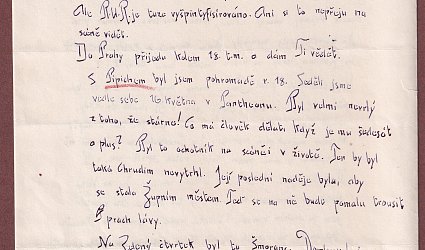 Ale R.U.R. je tuze vyšpintyfisírováno. Ani si to nepřeju na
scéně vidět.
Do Prahy přijedu kolem 18. t.m. a dám Ti vědět.
S Pipichem byl jsem pohromadě r. 18. Seděli jsme
vedle sebe 16. května v Pantheonu. Byl velmi nevrlý
z toho, že stárne! Co má člověk dělati když je mu šedesát
a plus? Byl to ochotník na scénéi v životě. Ten by byl
také Chrudim nevytrhl. Její poslední naděje byla, aby
se stala Župním městem. Teď se na ně bude pomalu trousit
prach lávy.
Na Zelený čtvrtek byl tu Šmoranc.